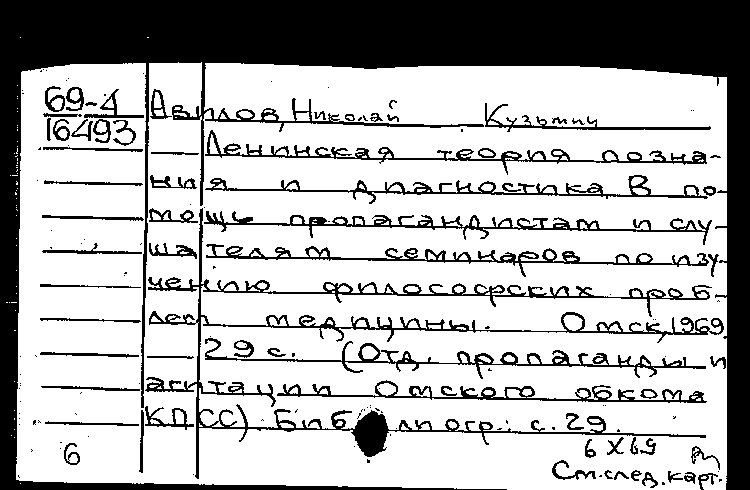 69-4 Авилов, Николай Кузьмич
16493
Ленинская теория позна-
ния и диагностика. В по-
мощь пропагандистам и слу-
шателям семинаров по изу-
чению философских проб-
лем медицины. Омск, 1969.
29 с. (Отд. пропаганды и
агитации Омского обкома
КПСС) Библиогр.: с. 29.
6 6 X 69
См. след. карт.